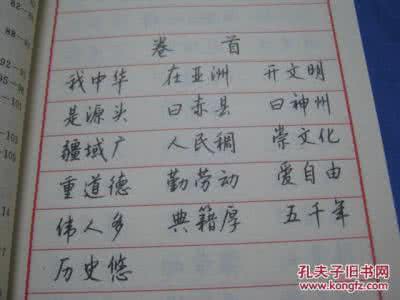 卷 首
我中华 在亚洲 开文明
是源头 曰赤县 曰神州
疆域广 人民稠 崇文化
重道德 勤劳动 爱自由
伟人多 典籍厚 五千年
历史悠
82-
88-9
92-
-91
95-
-98
-101
-103
-105
14
孔夫子旧书网
www.kongfz.com